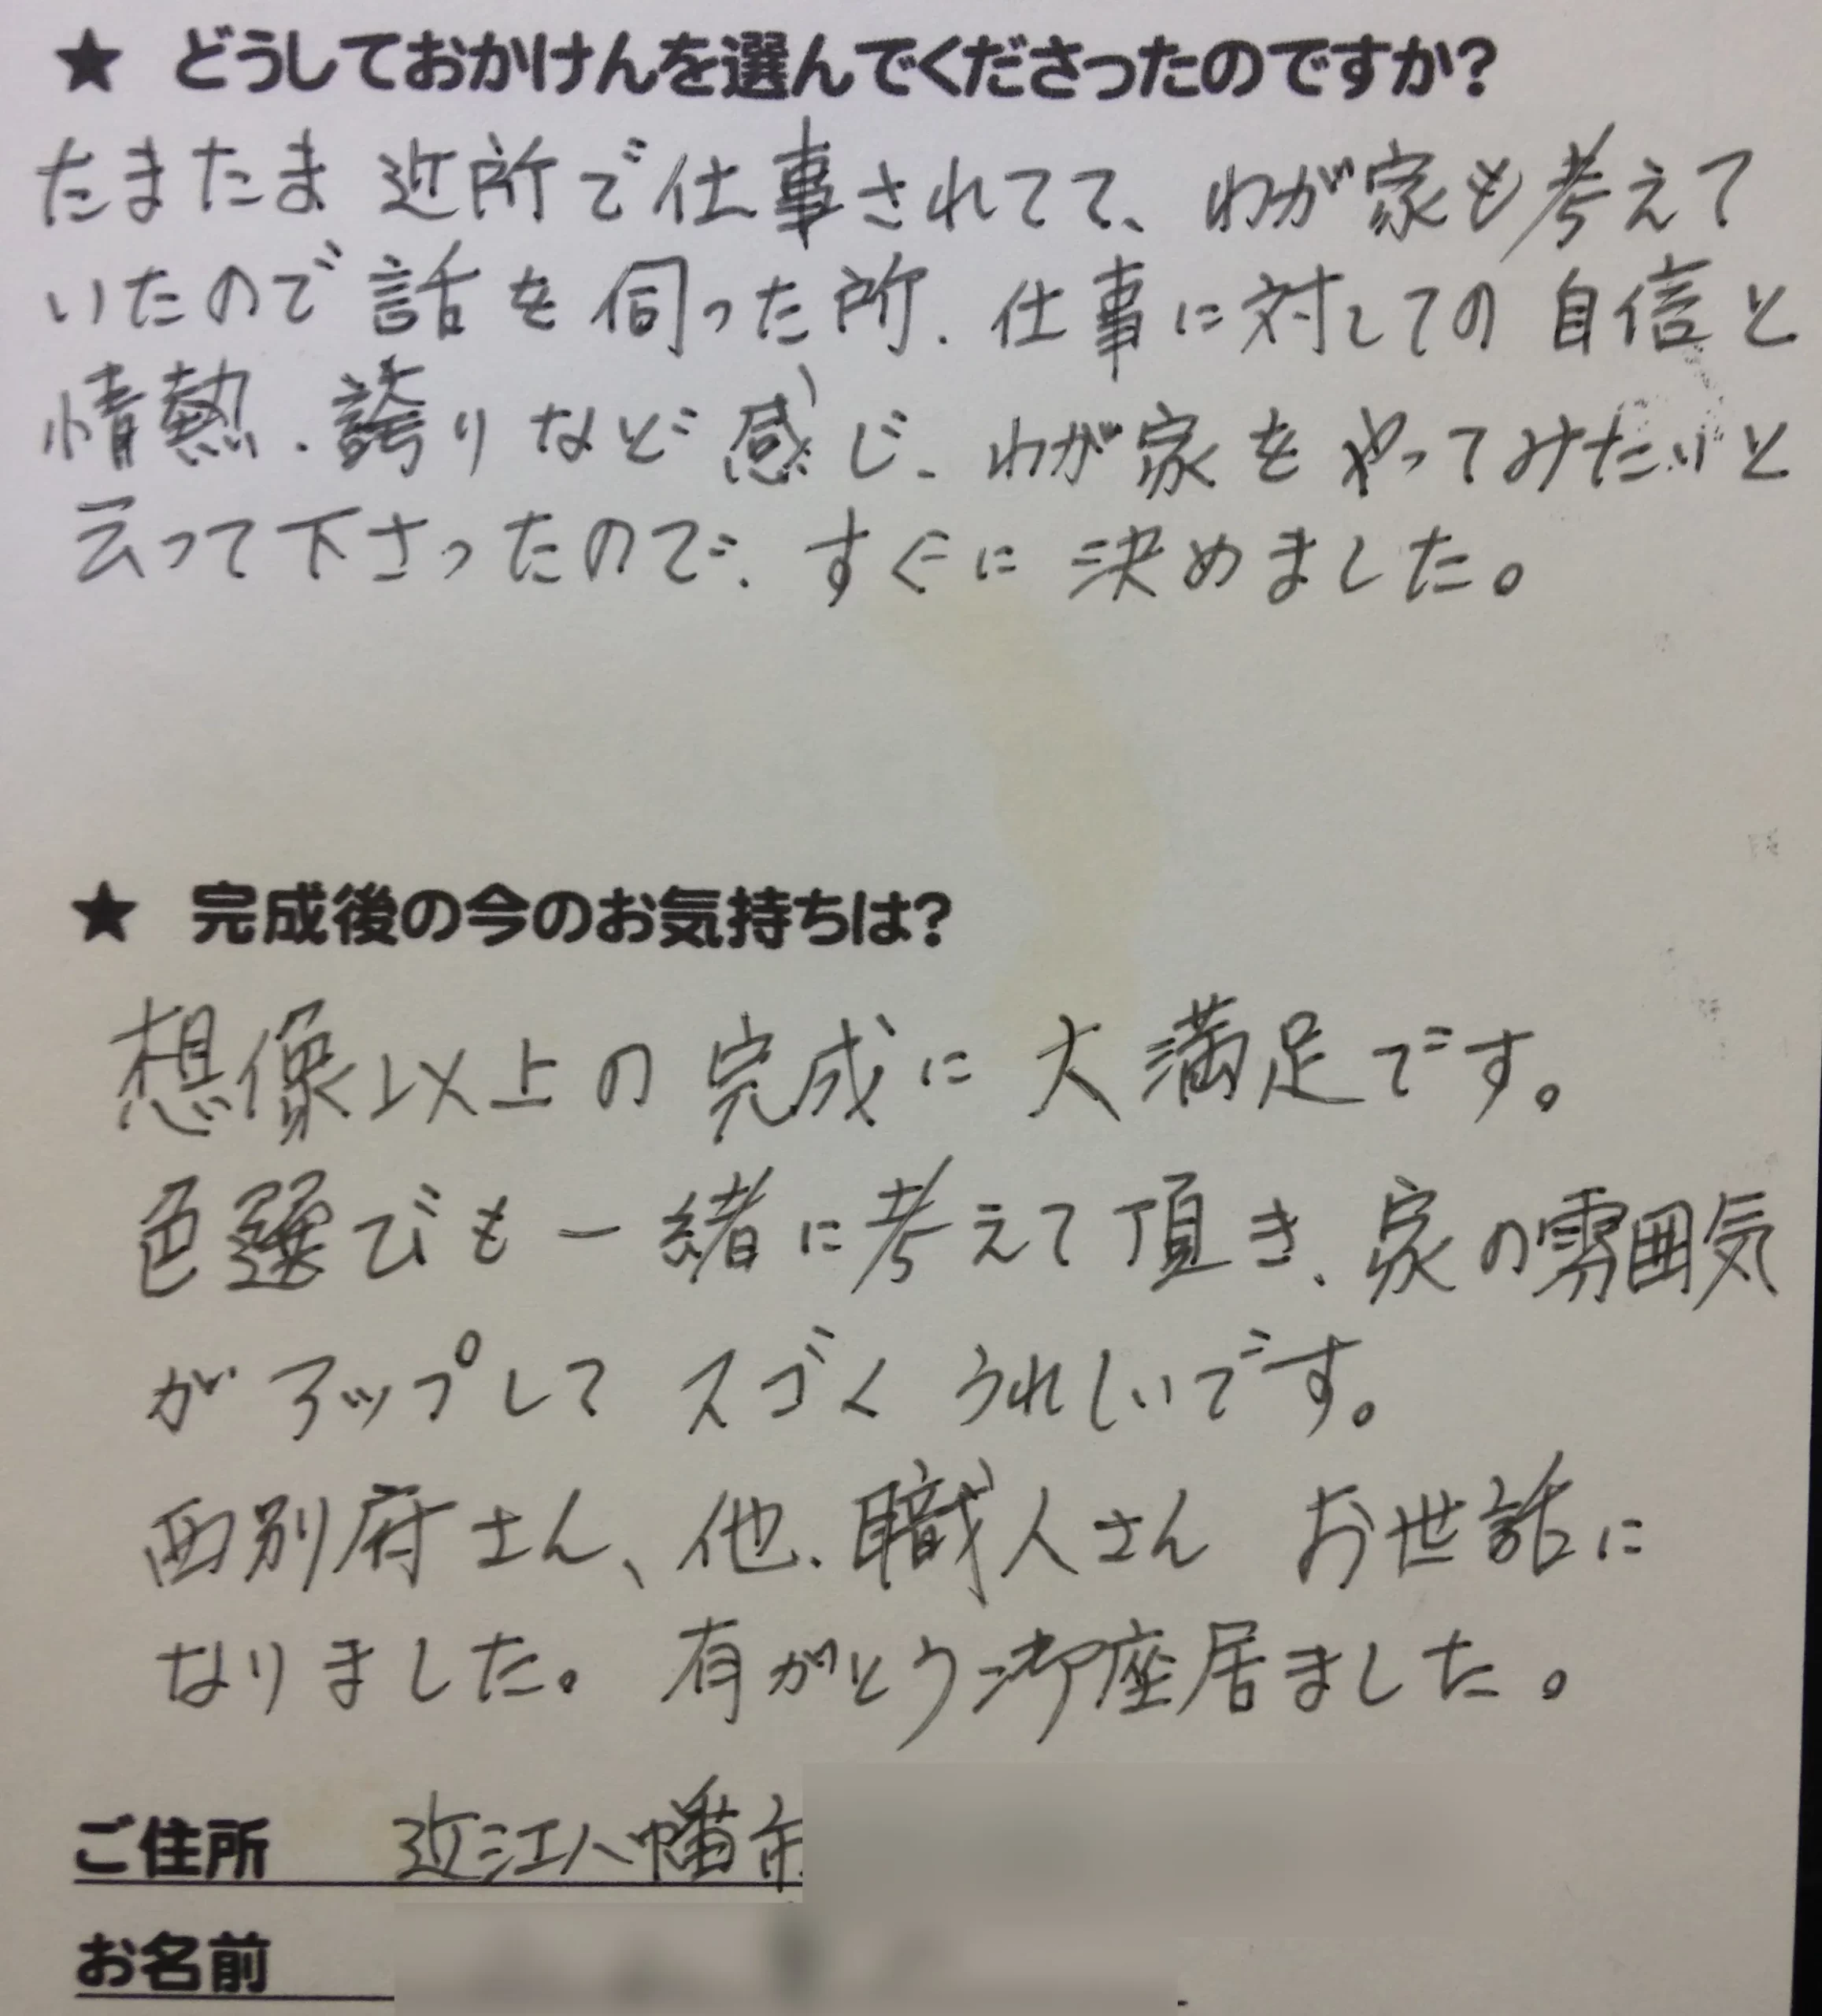 ★ どうしておかけんを選んでくださったのですか?
たまたま 近所で仕事されてて、わが家も考えて
いたので話を伺った所、仕事に対しての自信と
情熱、誇りなど感じ、わが家をやってみたいと
云って下さったので、すぐに決めました。
★ 完成後の今のお気持ちは?
想像以上の完成に大満足です。
色選びも一緒に考えて頂き、家の雰囲気
がアップしてスゴくうれしいです。
西別府さん、他、職人さん お世話に
なりました。有がとう御座居ました。
ご住所 近江八幡市
お名前